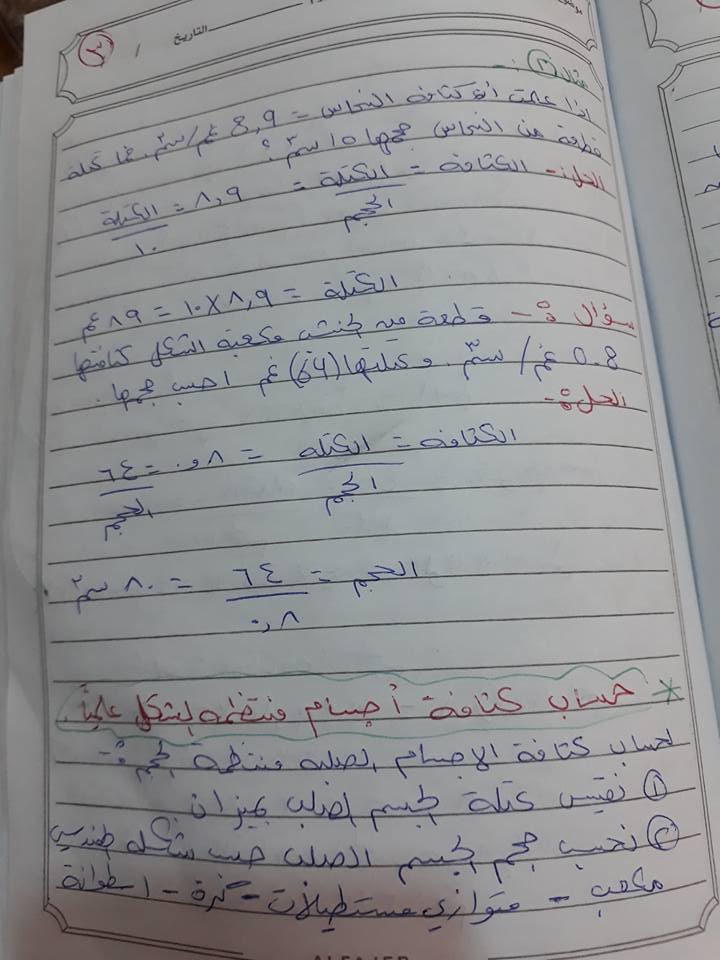 التاريخ / ٣
مثال ٢ :-
إذا علمت أن كثافة النحاس = 8,9 غم/سم٣. فما كتلة
قطعة من النحاس حجمها ١٠ سم٣ ؟
الحل:- الكثافة = الكتلة / الحجم = ٨,٩ = الكتلة / ١٠
الكتلة = ٨,٩ × ١٠ = ٨٩ غم
سؤال :- قطعة من خشب مكعبة الشكل كثافتها
0.8 غم / سم٣. وكتلتها (64) غم احسب حجمها.
الحل :-
الكثافة = الكتلة / الحجم = ٠,٨ = ٦٤ / الحجم
الحجم = ٦٤ / ٠,٨ = ٨٠ سم٣
* حساب كثافة أجسام منتظمة الشكل علمياً.
لحساب كثافة الاجسام الصلبه منتظمة الحجم :-
١ نقيس كتلة الجسم الصلب بميزان
٢ نحسب حجم الجسم الصلب حسب شكله هندسي
مكعب - متوازي مستطيلات - كرة - اسطوانة